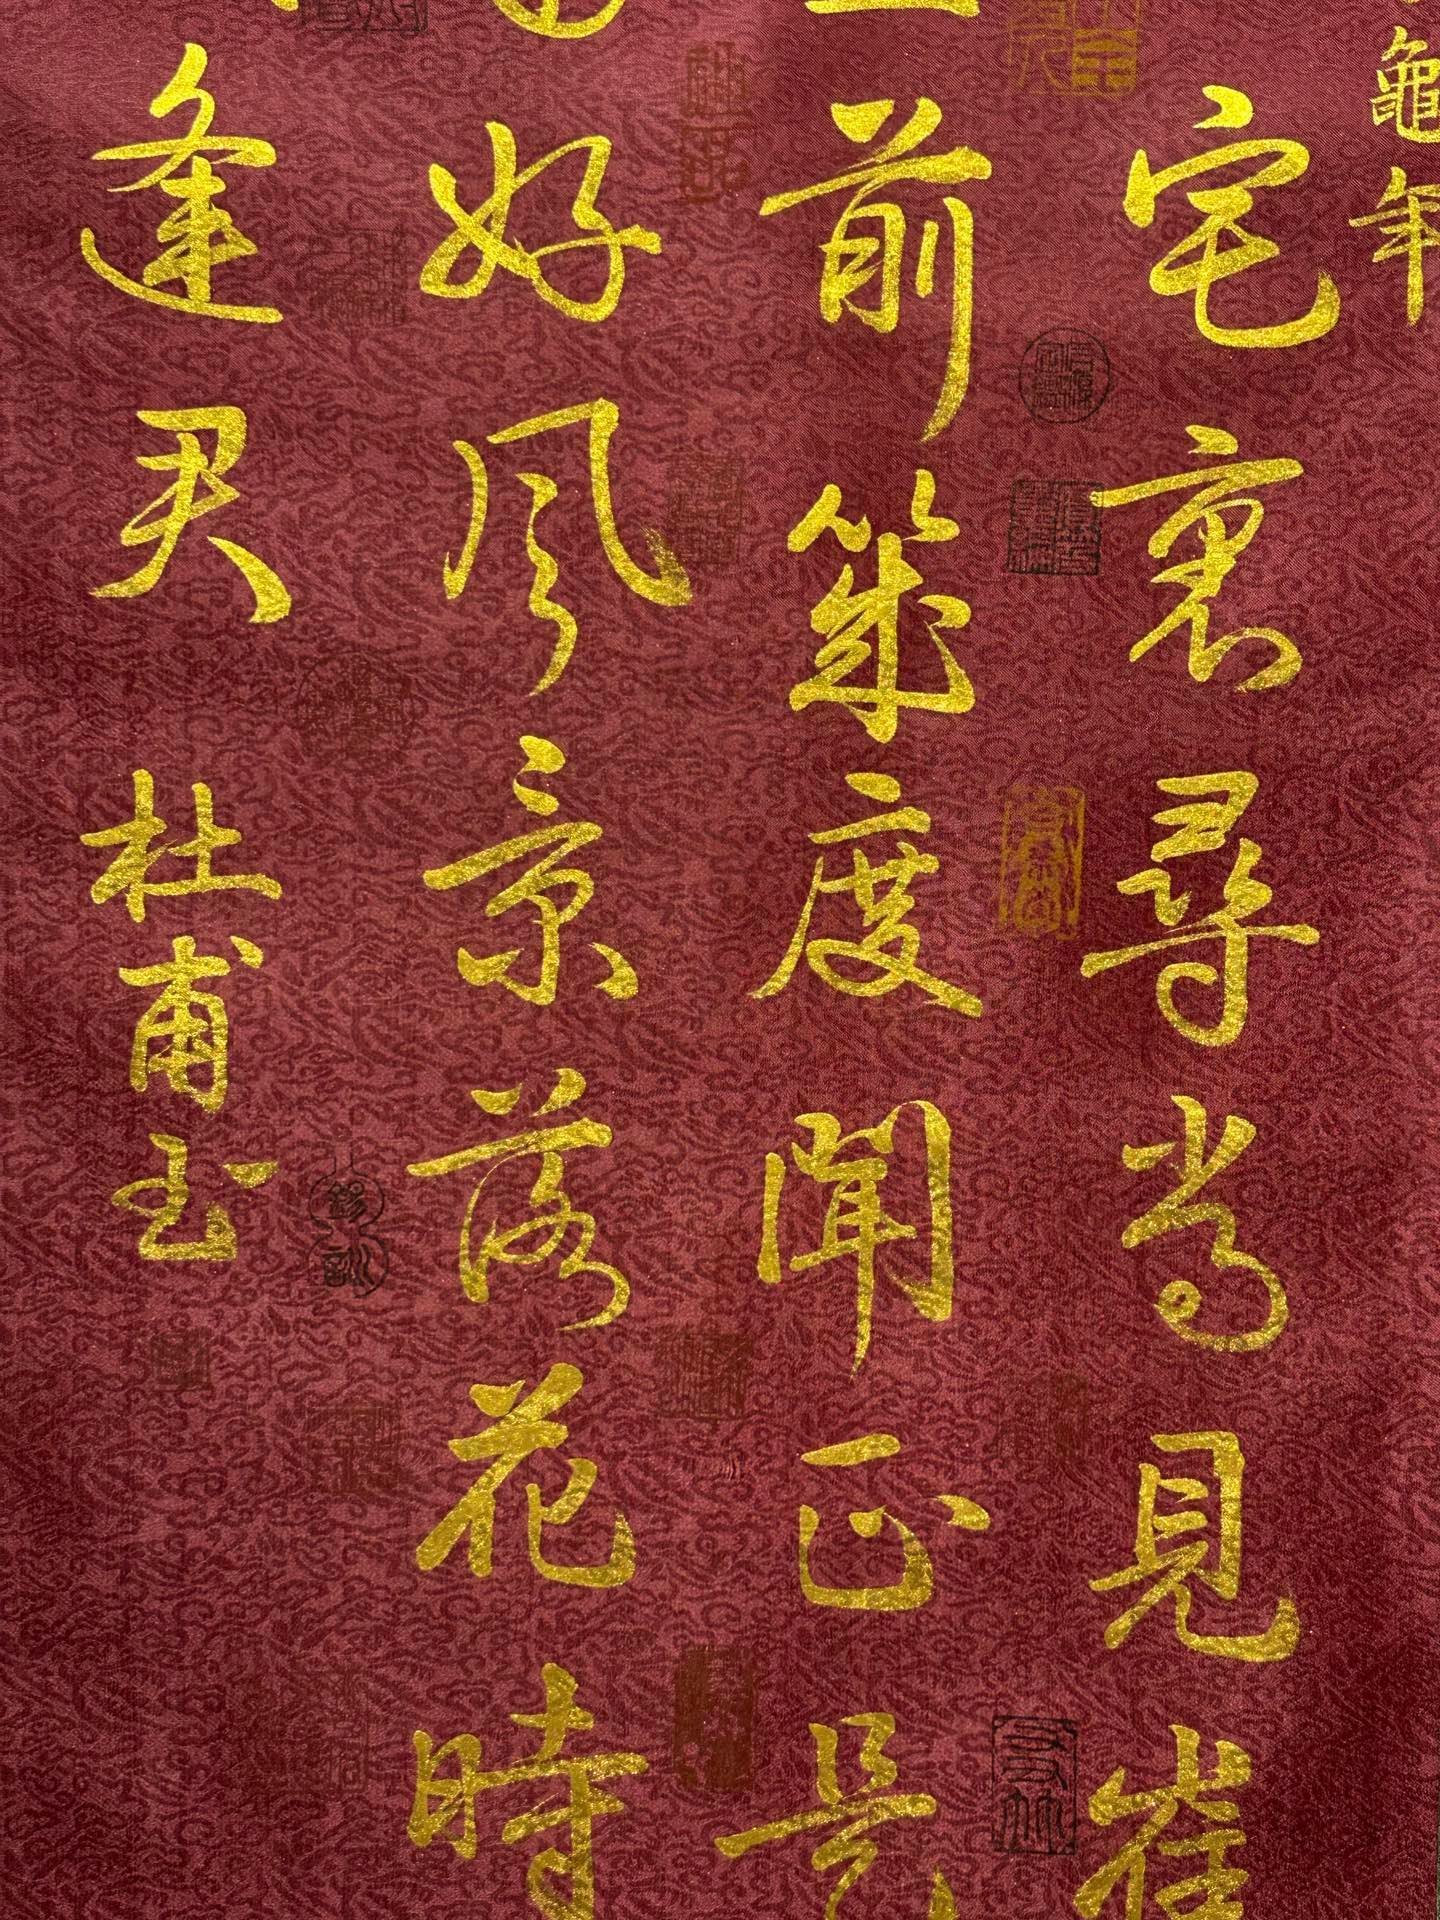 龜年
宅裏尋常見崔
前幾度聞正是
好风景落花時
逢君 杜甫